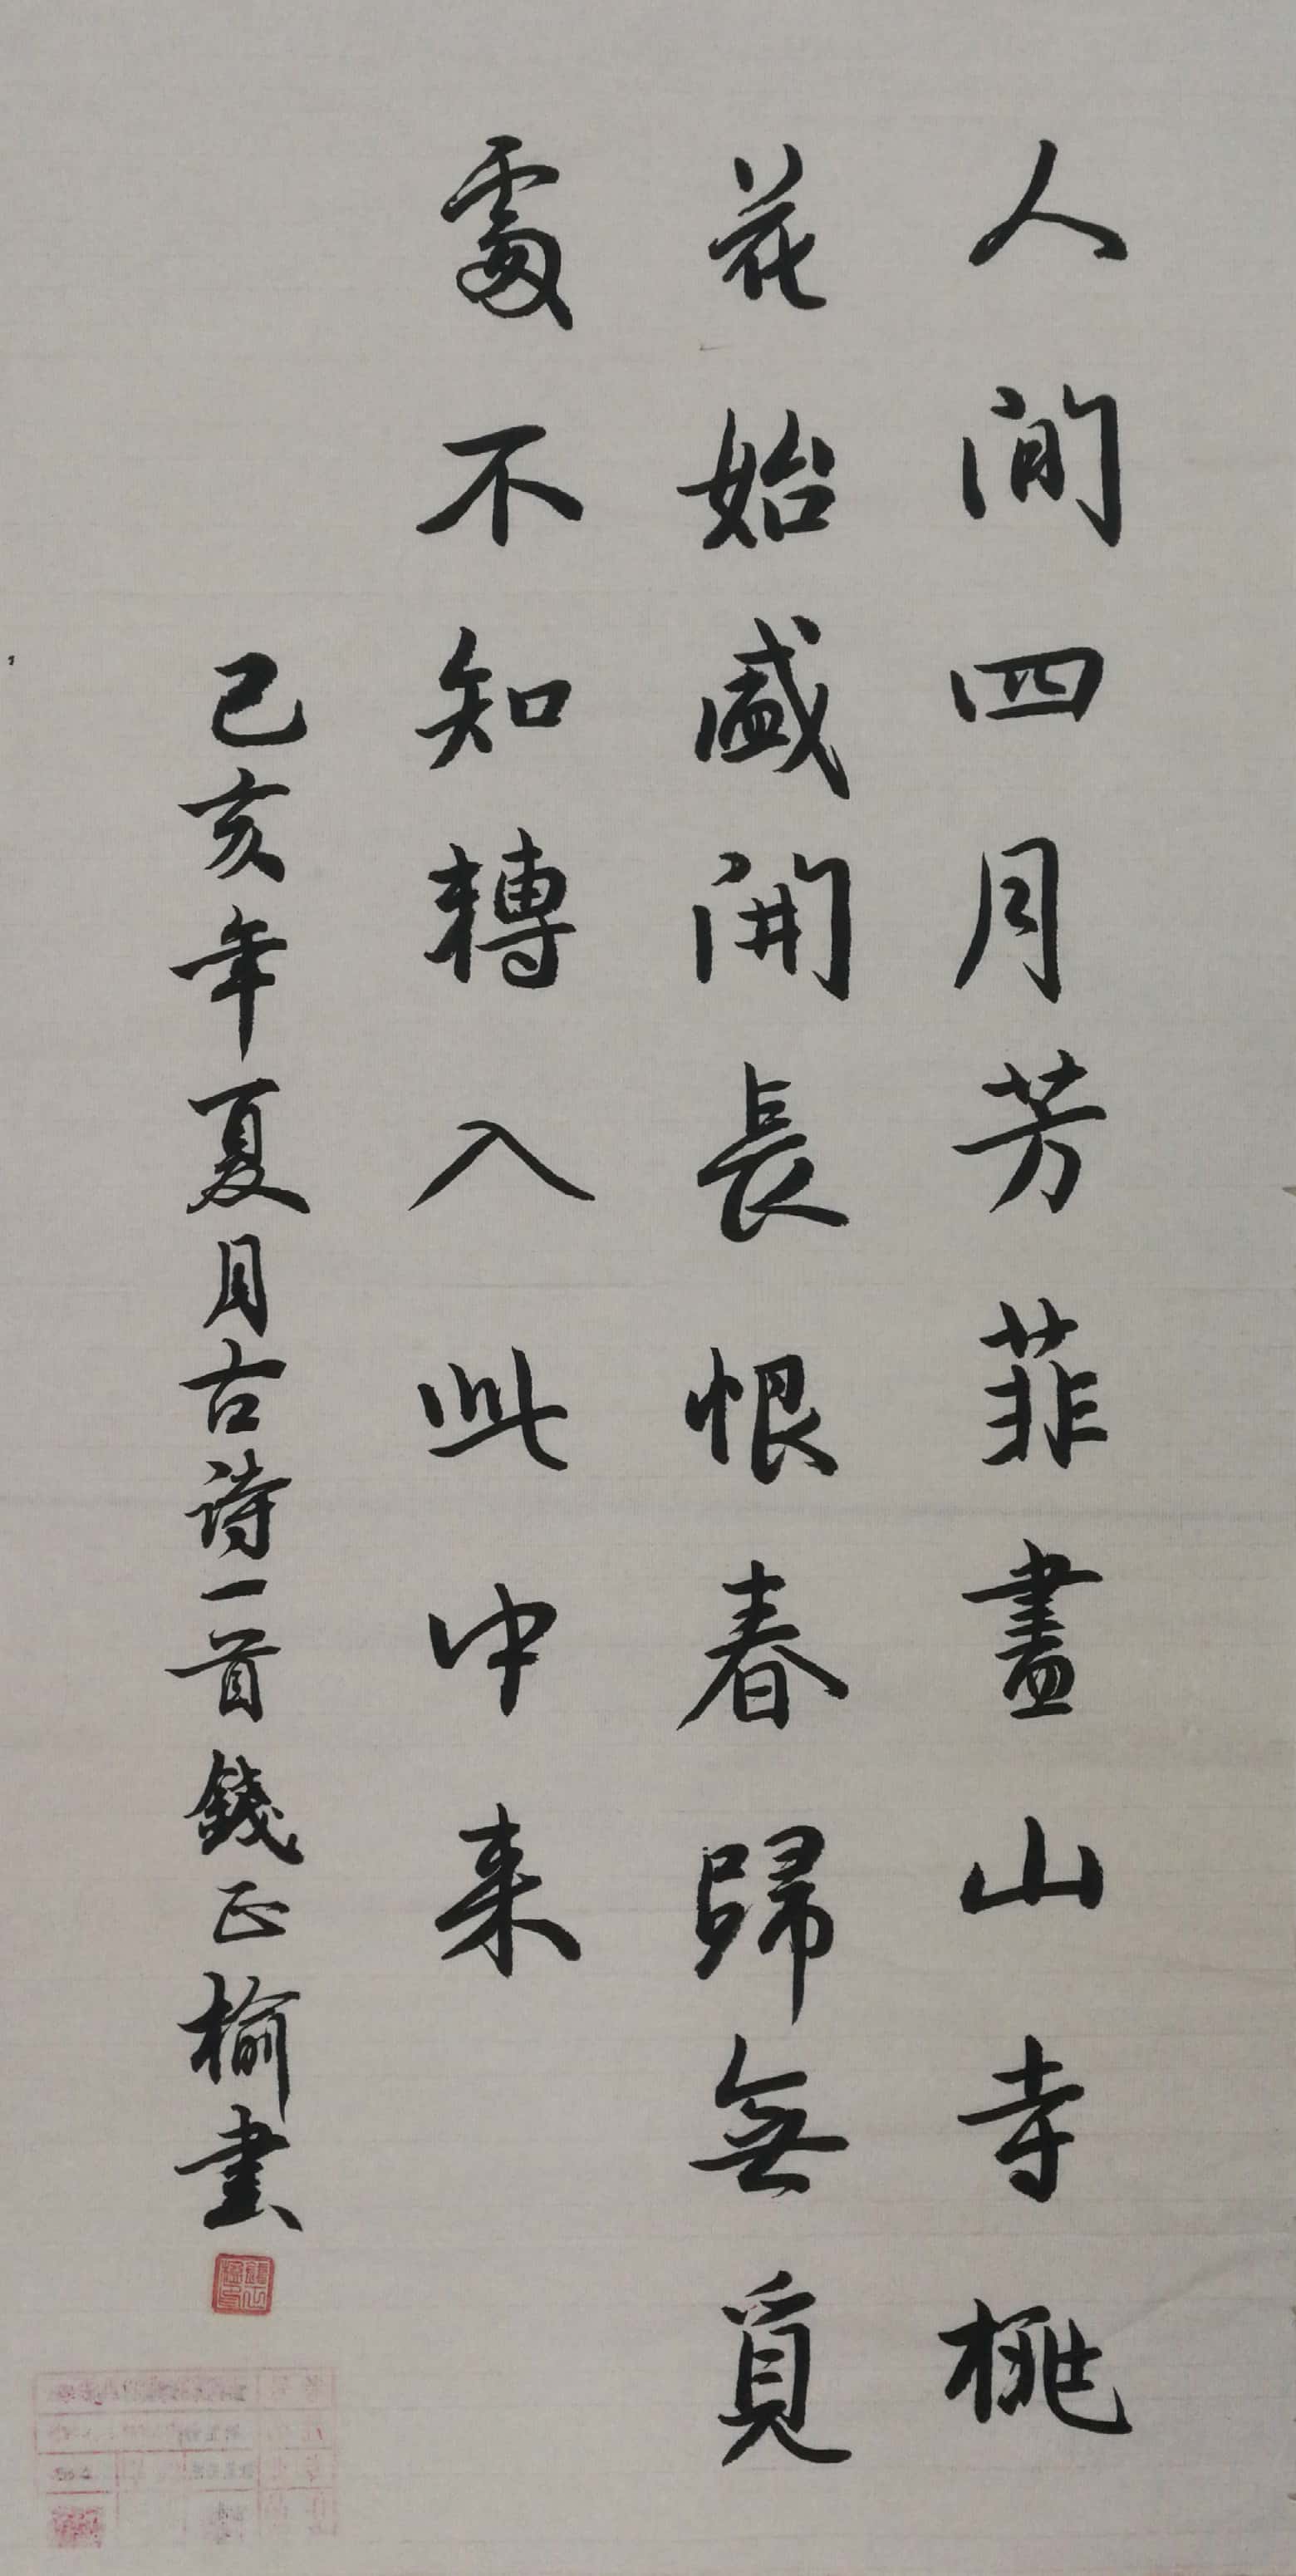 人間四月芳菲盡山寺桃
花始盛開長恨春歸無覓
處不知轉入此中来
己亥年夏月古詩一首錢正榆書